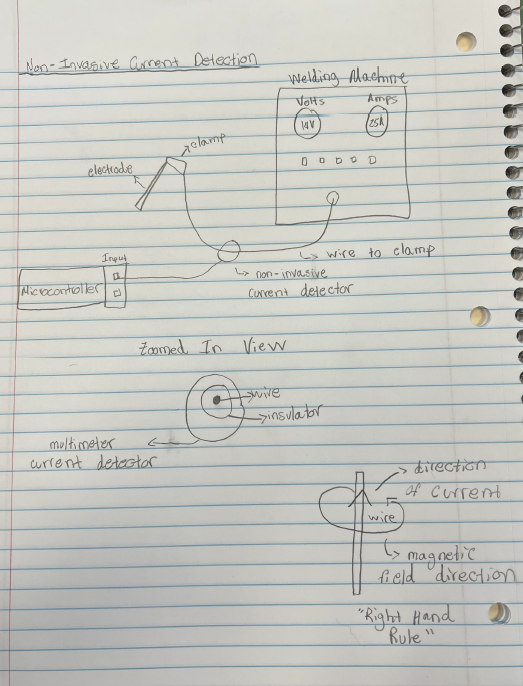 Non-Invasive Current Detection
Welding Machine
Volts
Amps
14V
25A
clamp
electrode
Input
Microcontroller
wire to clamp
non-invasive
current detector
Zoomed In View
wire
insulator
multimeter
current detector
direction
of current
wire
magnetic
field direction
"Right Hand
Rule"